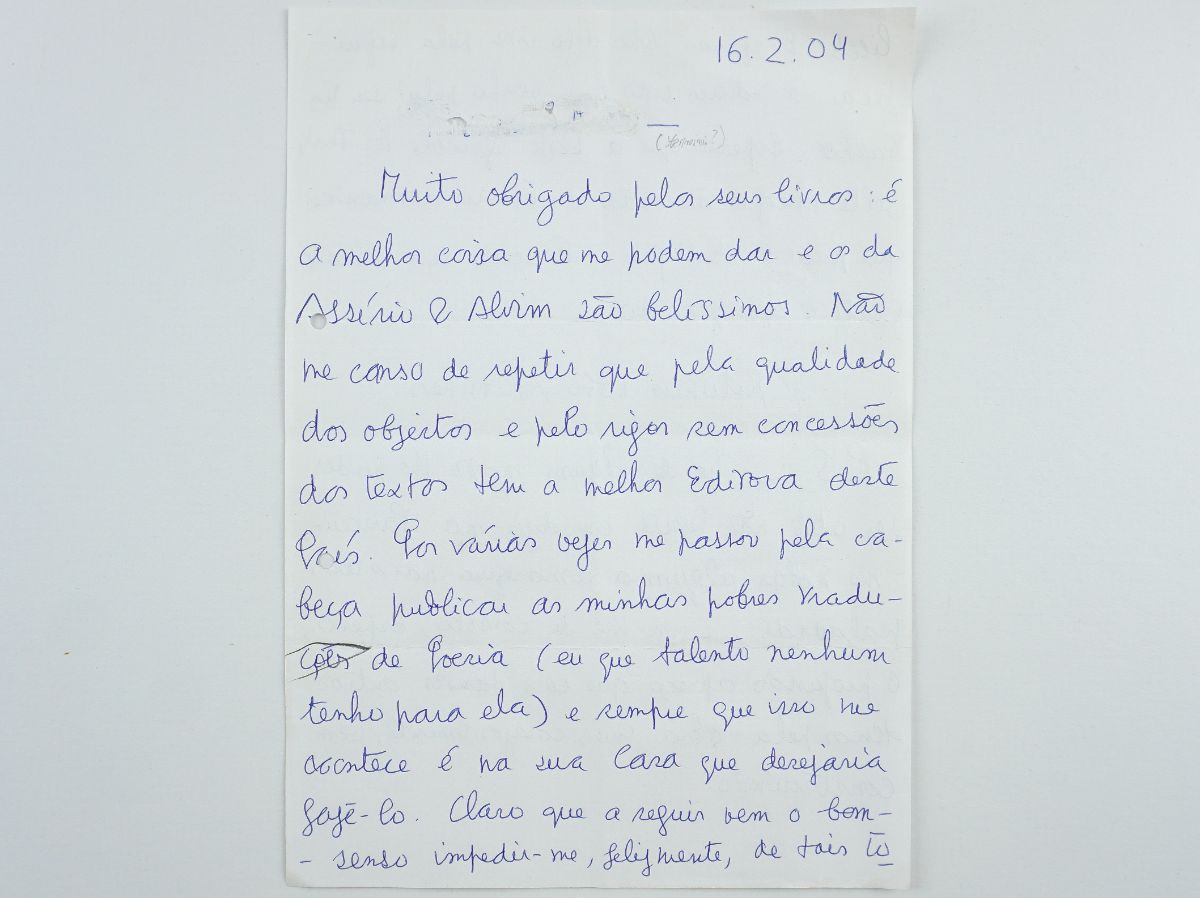 16.2.04
Muito obrigado pelos seus livros: é
a melhor coisa que me podem dar e os da
Assírio & Alvim são belíssimos. Não
me canso de repetir que pela qualidade
dos objectos e pelo rigor sem concessões
dos textos tem a melhor Editora deste
País. Por várias vezes me passou pela ca-
beça publicar as minhas pobres tradu-
ções de Poesia (eu que talento nenhum
tenho para ela) e sempre que isso me
acontece é na sua Casa que desejaria
fazê-lo. Claro que a seguir vem o bom-
- senso impedir-me, felizmente, de tais to